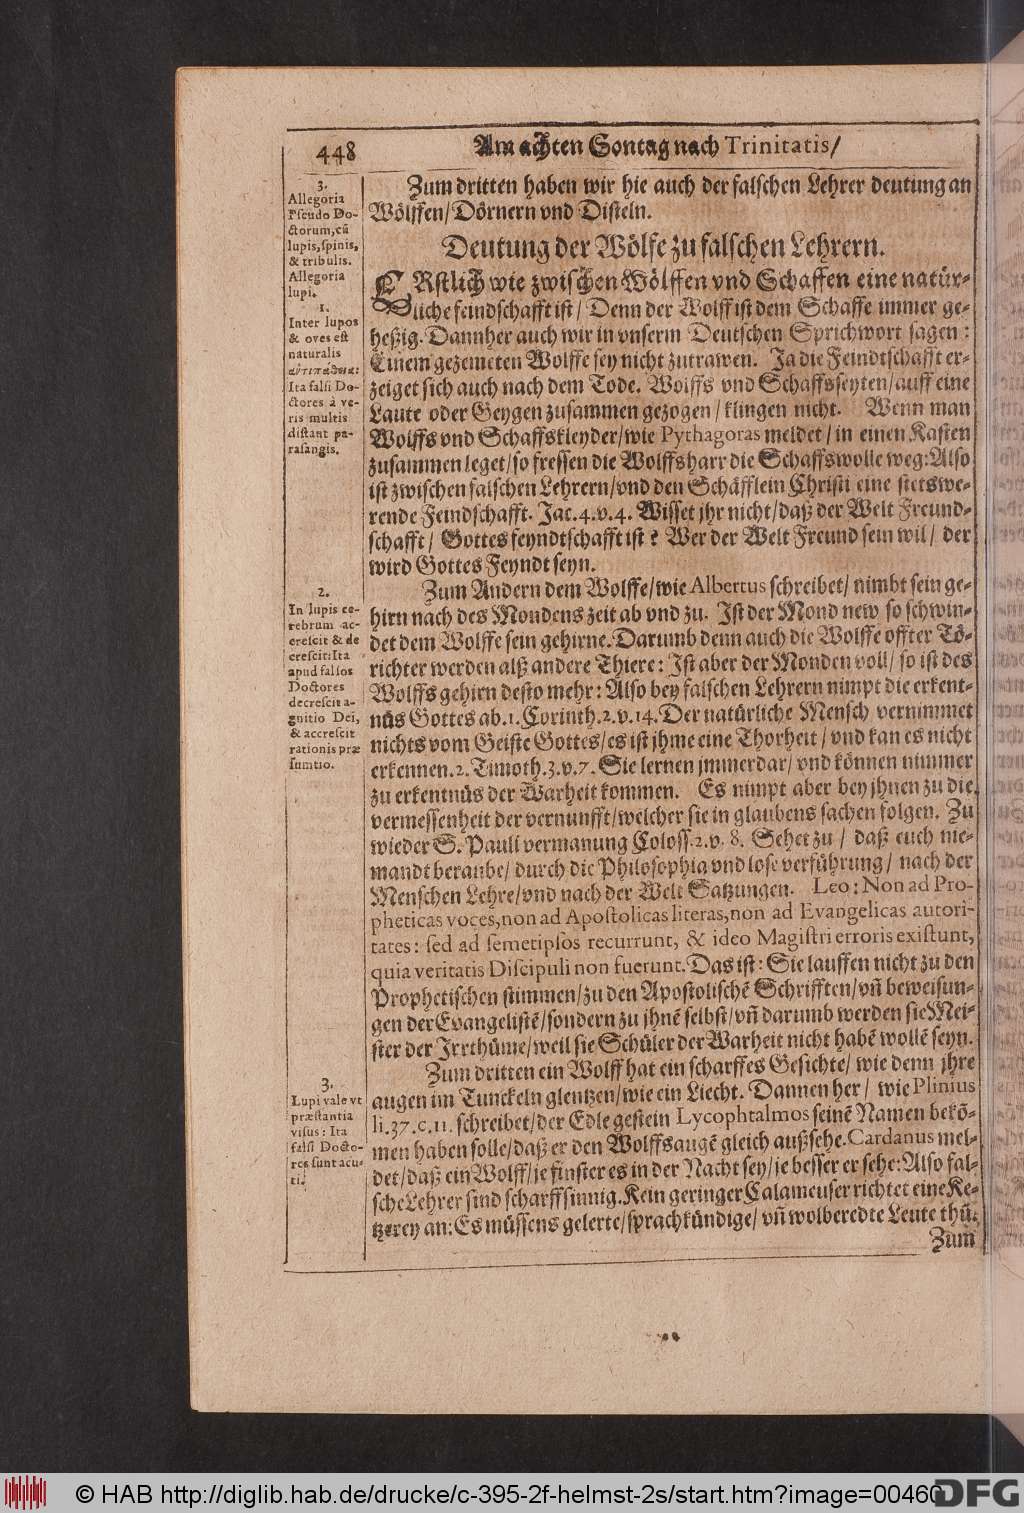 448
Am achten Sontag nach Trinitatis/
3.
Allegoria
Pseudo Do-
ctorum, cũ
lupis, spinis,
& tribulis.
Allegoria
lupi.
1.
Inter lupos
& oves est
naturalis
ἀντιπάθεια:
Ita falsi Do-
ctores à ve-
ris multis
distant pa-
rasangis.
2.
In lupis ce-
rebrum ac-
crescit & de
crescit: Ita
apud falsos
Doctores
decrescit a-
gnitio Dei,
& accrescit
rationis præ
sumtio.
3.
Lupi vale vt
præstantia
visus: Ita
falsi Docto-
res sunt acu-
ti.
Zum dritten haben wir hie auch der falschen Lehrer deutung an
Wölffen/ Dörnern vnd Disteln.
Deutung der Wölfe zu falschen Lehrern.
ERstlich wie zwischen Wölffen vnd Schaffen eine natür-
liche feindschafft ist/ Denn der Wolff ist dem Schaffe immer ge-
heßig. Dannher auch wir in vnserm Deutschen Sprichwort sagen:
Einem gezemeten Wolffe sey nicht zutrawen. Ja die Feindtschafft er-
zeiget sich auch nach dem Tode. Wolffs vnd Schaffsseyten/ auff eine
Laute oder Geygen zusammen gezogen/ klingen nicht. Wenn man
Wolffs vnd Schaffskleyder/ wie Pythagoras meldet/ in einen Kasten
zusammen leget/ so fressen die Wolffsharr die Schaffswolle weg: Also
ist zwischen falschen Lehrern/ vnd den Schäfflein Christi eine stetswe-
rende Feindschafft. Jac. 4. v. 4. Wisset jhr nicht/ daß der Welt Freund-
schafft/ Gottes feyndtschafft ist? Wer der Welt Freund sein wil/ der
wird Gottes Feyndt seyn.
Zum Andern dem Wolffe/ wie Albertus schreibet/ nimbt sein ge-
hirn nach des Mondens zeit ab vnd zu. Ist der Mond new so schwin-
det dem Wolffe sein gehirne. Darumb denn auch die Wolffe offter Tö-
richter werden alß andere Thiere: Ist aber der Monden voll/ so ist des
Wolffs gehirn desto mehr: Also bey falschen Lehrern nimpt die erkent-
nüs Gottes ab. 1. Corinth. 2. v. 14. Der natürliche Mensch vernimmet
nichts vom Geiste Gottes/ es ist jhme eine Thorheit/ vnd kan es nicht
erkennen. 2. Timoth. 3. v. 7. Sie lernen jmmerdar/ vnd können nimmer
zu erkentnüs der Warheit kommen. Es nimpt aber bey jhnen zu die
vermessenheit der vernunfft/ welcher sie in glaubens sachen folgen. Zu
wieder S. Pauli vermanung Coloss. 2. v. 8. Sehet zu/ daß euch nie-
mandt beraube/ durch die Philosophia vnd lose verführung/ nach der
Menschen Lehre/ vnd nach der Welt Satzungen. Leo: Non ad Pro-
pheticas voces, non ad Apostolicas literas, non ad Evangelicas autori-
tates: sed ad semetipsos recurrunt, & ideo Magistri erroris existunt,
quia veritatis Discipuli non fuerunt. Das ist: Sie lauffen nicht zu den
Prophetischen stimmen/ zu den Apostolischẽ Schrifften/ vñ beweisun-
gen der Evangelistẽ/ sondern zu jhnẽ selbst/ vñ darumb werden sie Mei-
ster der Irrthüme/ weil sie Schüler der Warheit nicht habẽ wollẽ seyn.
Zum dritten ein Wolff hat ein scharffes Gesichte/ wie denn jhre
augen im Tunckeln glentzen/ wie ein Liecht. Dannen her/ wie Plinius
li. 37. c. 11. schreibet/ der Edle gestein Lycophtalmos seinẽ Namen bekõ-
men haben solle/ daß er den Wolffsaugẽ gleich außsehe. Cardanus mel-
det/ daß ein Wolff/ je finster es in der Nacht sey/ je besser er sehe: Also fal-
sche Lehrer sind scharffsinnig. Kein geringer Calameuser richtet eine Ke-
tzerey an: Es müssens gelerte/ sprachkündige/ vñ wolberedte Leute thũ.
Zum
© HAB http://diglib.hab.de/drucke/c-395-2f-helmst-2s/start.htm?image=00460
DFG